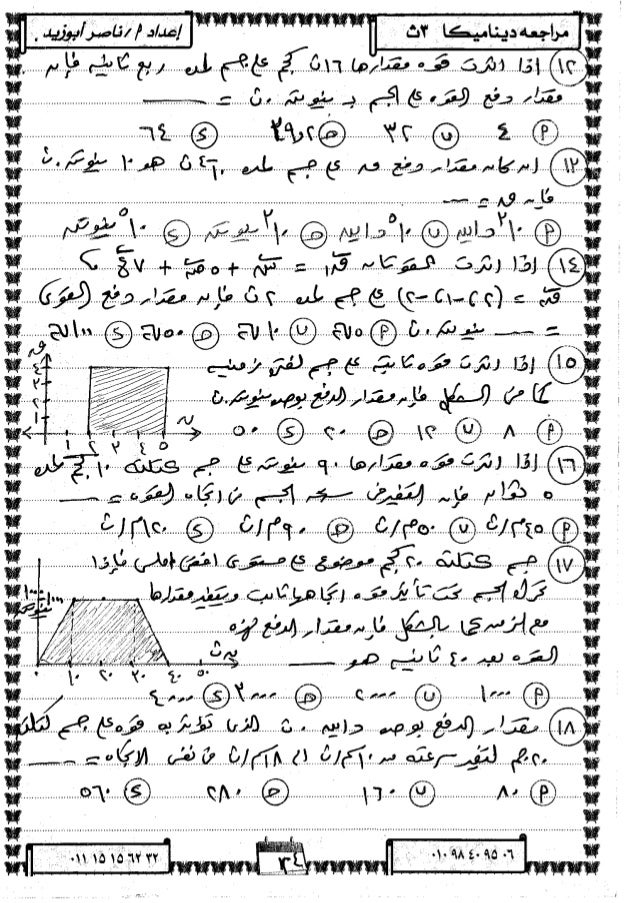 مراجعه ديناميكا ٣ث
إعداد م/ ناصر أبوزيد.
١٢ إذا أثرت قوه مقدارها ١٦ ث كجم على جسم لمده ربع ثانيه فإن
مقدار دفع القوه على الجسم بـ نيوتن.ث = ــــ
P ٤ ب ٣٢ حـ ٣٩٫٢ د ٦٤
١٣ إن كان مقدار دفع قوه على جسم لمده ١٠⁻⁴ ث هو ١٠ نيوتن.ث
فإن قه = ــ
P ١٠² داين ب ١٠⁵ داين حـ ١٠² نيوتن د ١٠⁵ نيوتن
١٤ إذا أثرت القوتان ق₁ = س + ٥ص + ٧ع ،
ق₂ = (٢، -١، -٢) على جسم لمده ٢ث فإن مقدار دفع القوى
= ــــ نيوتن.ث
١٥ إذا أثرت قوه ثابته على جسم لفتره زمنيه
كما في الشكل فإن مقدار الدفع بوحده نيوتن.ث
P ٨ ب ١٢ حـ ٢٠ د ٥٠
ق ٤ ٣ ٢ ١
١ ٢ ٣ ٤ ٥ ن
١٦ إذا أثرت قوه مقدارها ٩٠ نيوتن على جسم كتلته ١٠ كجم لمده
٥ ثوان فإن التغير في سرعه الجسم في اتجاه القوه = ــــ
P ٤٥م/ث ب ٥٠م/ث حـ ٩٠م/ث د ١٢٠م/ث
١٧ جسم كتلته ٢٠ كجم موضوع على مستوى افقى املس فإذا
تحرك الجسم تحت تأثير قوه اتجاهها ثابت ويتغير مقدارها
مع الزمن كما بالشكل فإن مقدار الدفع لهذه
القوه بعد ٤٠ ثانيه هو ــــ
P ١٠٠٠ ب ٢٠٠٠ حـ ٣٠٠٠ د ٤٠٠٠
نيوتن
٠ ١٠ ٢٠ ٣٠ ٤٠ ٥٠ ث
١٨ مقدار الدفع بوحده داين.ث الذى تؤثر به قوه على جسم كتلته
٢٠جم لتغير سرعته من ١٠سم/ث الى ١٨سم/ث فى نفس الاتجاه = ــــ
P ٨٠ ب ١٦٠ حـ ٢٨٠ د ٥٦٠
٠١٠ ٩٨ ٤٠ ٩٥ ٠٦
٣٤
٠١١ ١٥ ١٥ ٦٢ ٣٢